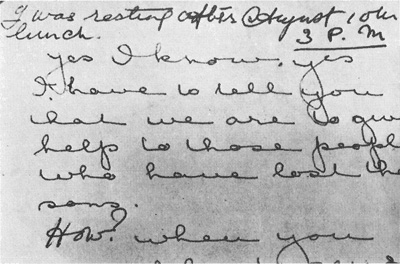 I was resting after August 10th
lunch. 3 P. M
yes I know, yes
I have to tell you
that we are to giv
help to those peopl
who have lost the
sons.
How? when you